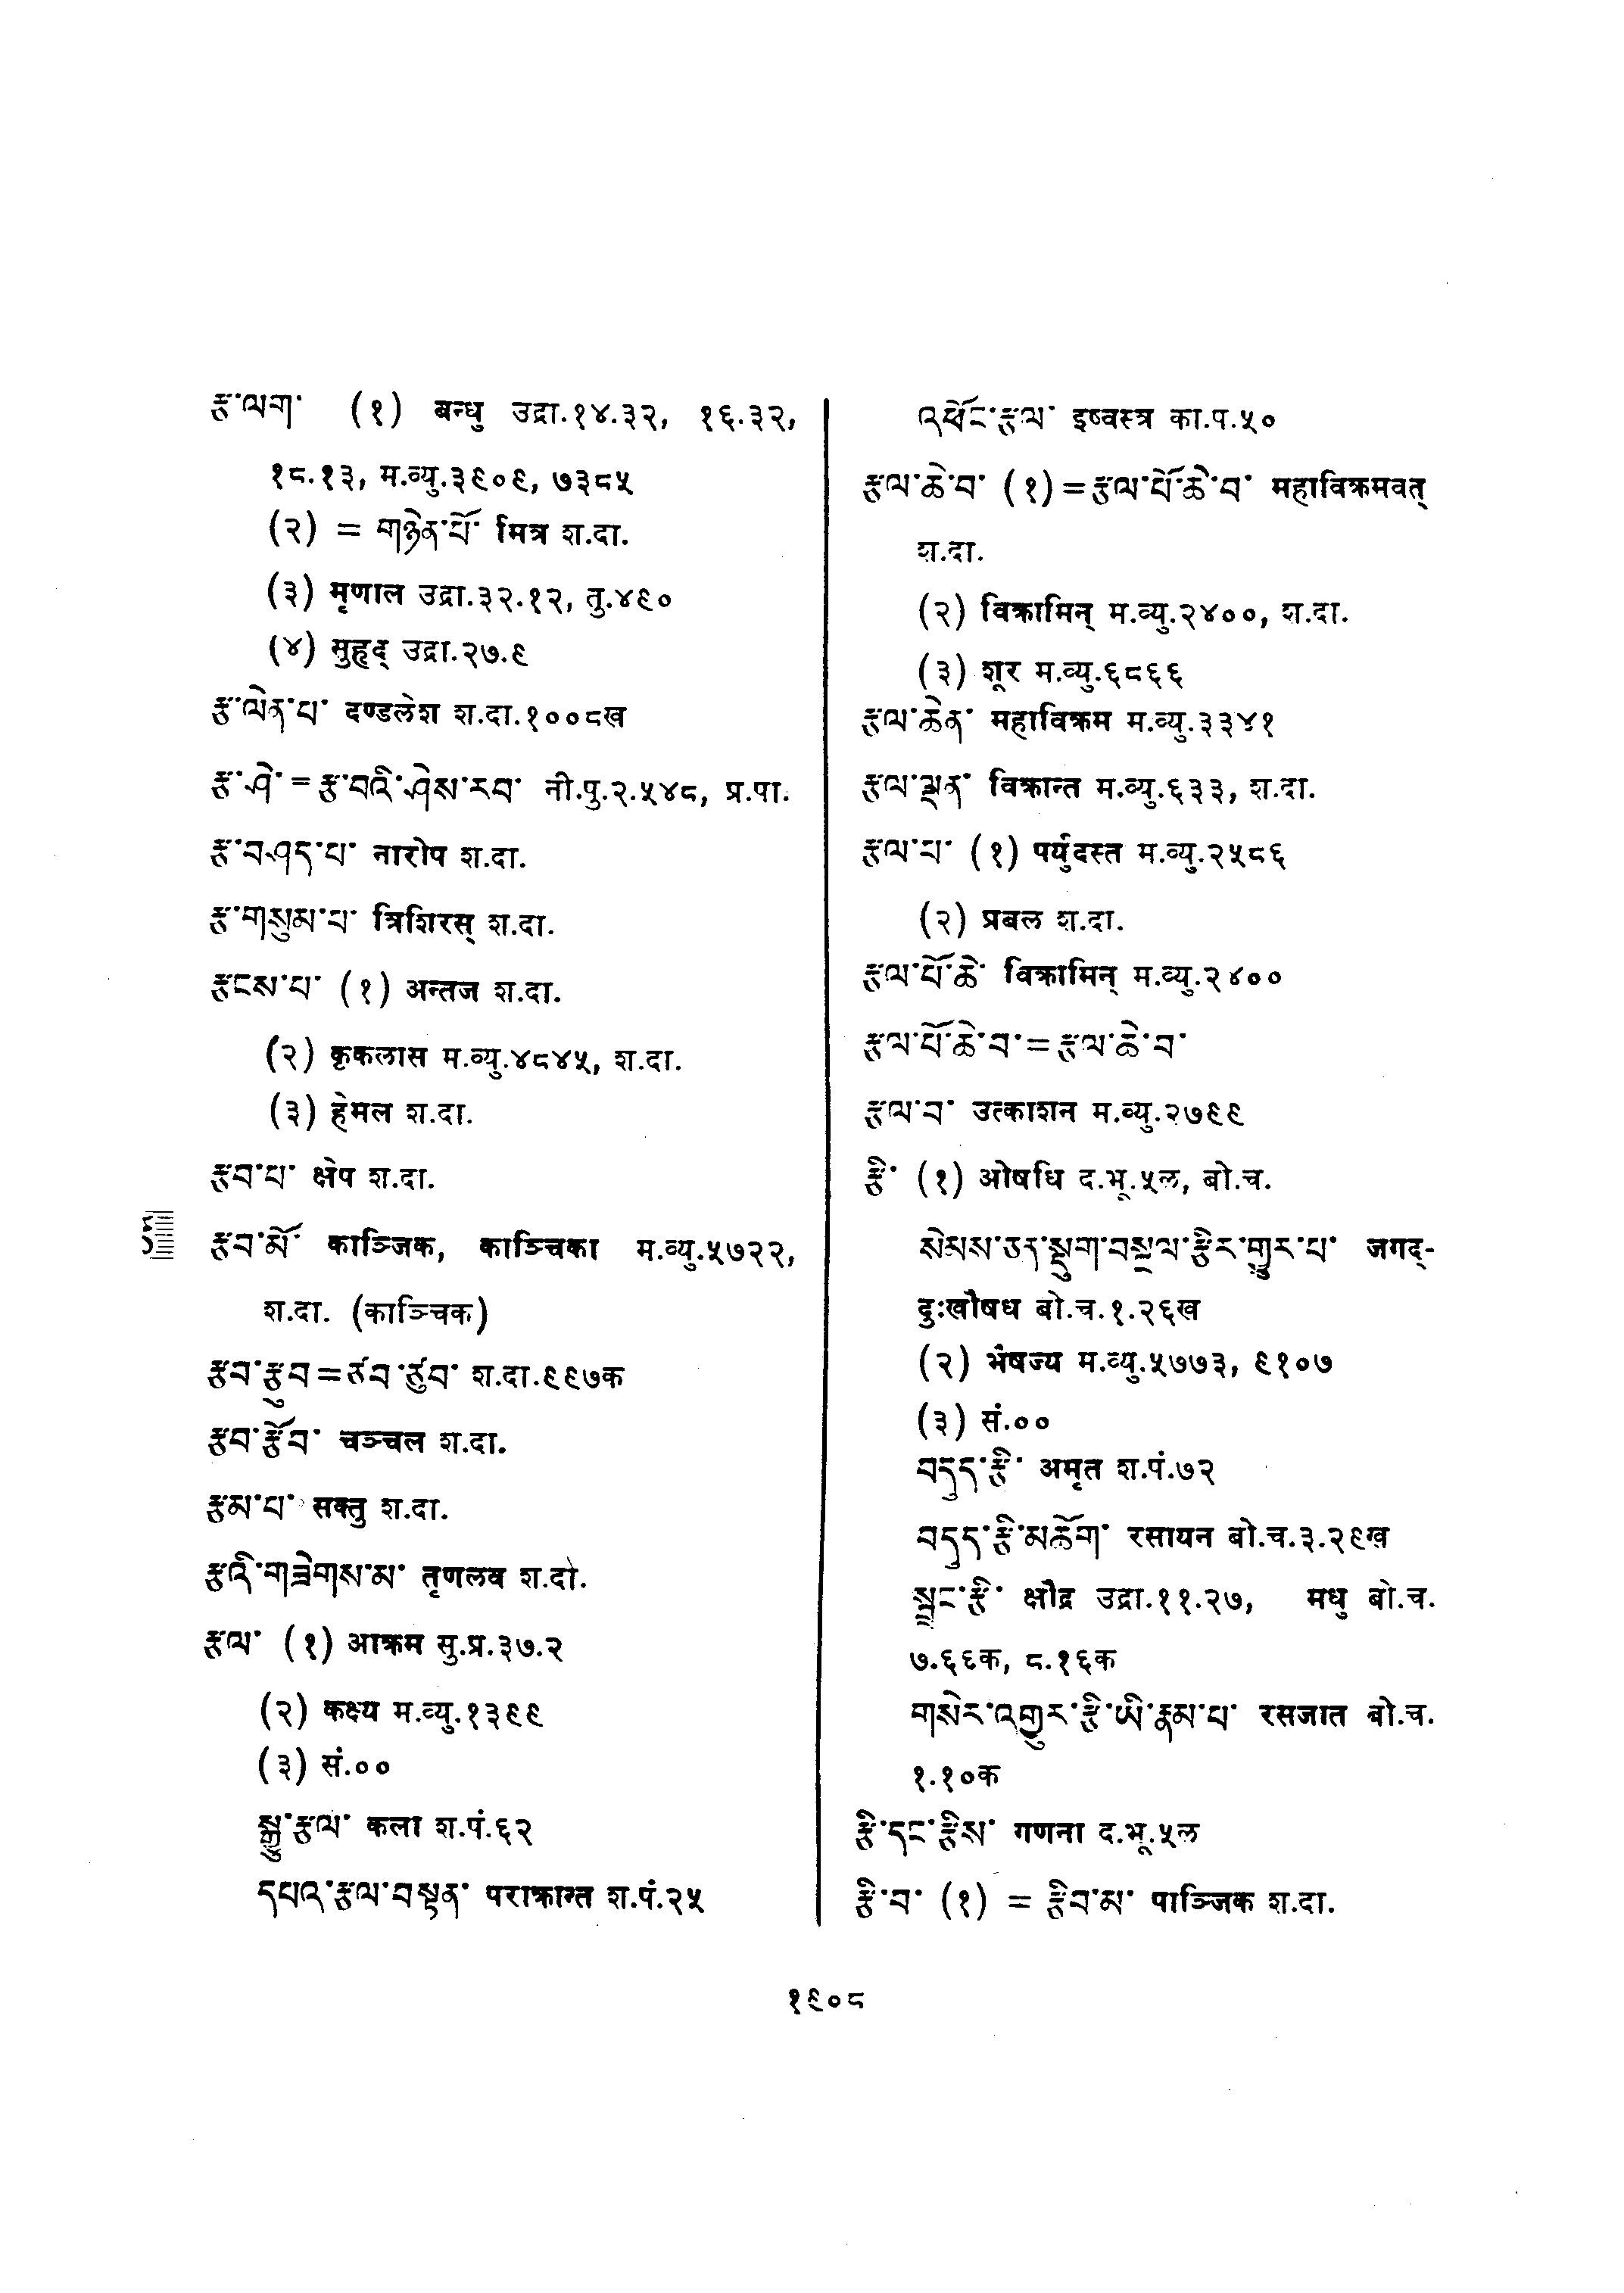 རྩ་ལག་ (१) बन्धु उद्रा.१४.३२, १६.३२,
१८.१३, म.व्यु.३९०९, ७३८५
(२) = གཉེན་པོ་ मित्र श.दा.
(३) मृणाल उद्रा.३२.१२, तु.४९०
(४) सुहृद् उद्रा.२७.९
རྩ་ལེན་པ་ दण्डलेश श.दा.१००८ख
རྩ་ཤེ་ = རྩ་བའི་ཤེས་རབ་ नी.पु.२.५४८, प्र.पा.
རྩ་བ་ཤད་པ་ नारोप श.दा.
རྩ་གསུམ་པ་ त्रिशिरस् श.दा.
རྩངས་པ་ (१) अन्तज श.दा.
(२) कृकलास म.व्यु.४८४५, श.दा.
(३) हेमल श.दा.
རྩབ་པ་ क्षेप श.दा.
རྩབ་མོ་ काञ्जिक, काञ्चिका म.व्यु.५७२२,
श.दा. (काञ्चिक)
རྩབ་རྩུབ=ཙབ་ཙུབ་ श.दा.९९७क
རྩབ་རྩོབ་ चञ्चल श.दा.
རྩམ་པ་ सक्तु श.दा.
རྩའི་གཟེགས་མ་ तृणलव श.दा.
རྩལ་ (१) आक्रम सु.प्र.३७.२
(२) कक्ष्य म.व्यु.१३९९
(३) सं.००
སྒྱུ་རྩལ་ कला श.पं.६२
དཔའ་རྩལ་བསྟན་ पराक्रान्त श.पं.२५
འཕོང་རྩལ་ इष्वस्त्र का.प.५०
རྩལ་ཆེ་བ་ (१)=རྩལ་པོ་ཆེ་བ་ महाविक्रमवत्
श.दा.
(२) विक्रामिन् म.व्यु.२४००, श.दा.
(३) शूर म.व्यु.६८६६
རྩལ་ཆེན་ महाविक्रम म.व्यु.३३४१
རྩལ་ལྡན་ विक्रान्त म.व्यु.६३३, श.दा.
རྩལ་པ་ (१) पर्युदस्त म.व्यु.२५८६
(२) प्रबल श.दा.
རྩལ་པོ་ཆེ་ विक्रामिन् म.व्यु.२४००
རྩལ་པོ་ཆེ་བ་=རྩལ་ཆེ་བ་
རྩལ་བ་ उत्काशन म.व्यु.२७९९
རྩི་ (१) ओषधि द.भू.५ल, बो.च.
སེམས་ཅན་སྡུག་བསྔལ་རྩིར་གྱུར་པ་ जगद्-
दुःखौषध बो.च.१.२६ख
(२) भैषज्य म.व्यु.५७७३, ९१०७
(३) सं.००
བདུད་རྩི་ अमृत श.पं.७२
བདུད་རྩི་མཆོག་ रसायन बो.च.३.२९ख
སྦྲང་རྩི་ क्षौद्र उद्रा.११.२७, मधु बो.च.
७.६६क, ८.१६क
གསེར་འགྱུར་རྩི་ཡི་རྣམ་པ་ रसजात बो.च.
१.१०क
རྩི་དང་རྩིས་ गणना द.भू.५ल
རྩི་བ་ (१) = རྩིབ་མ་ पाञ्जिक श.दा.
१९०८